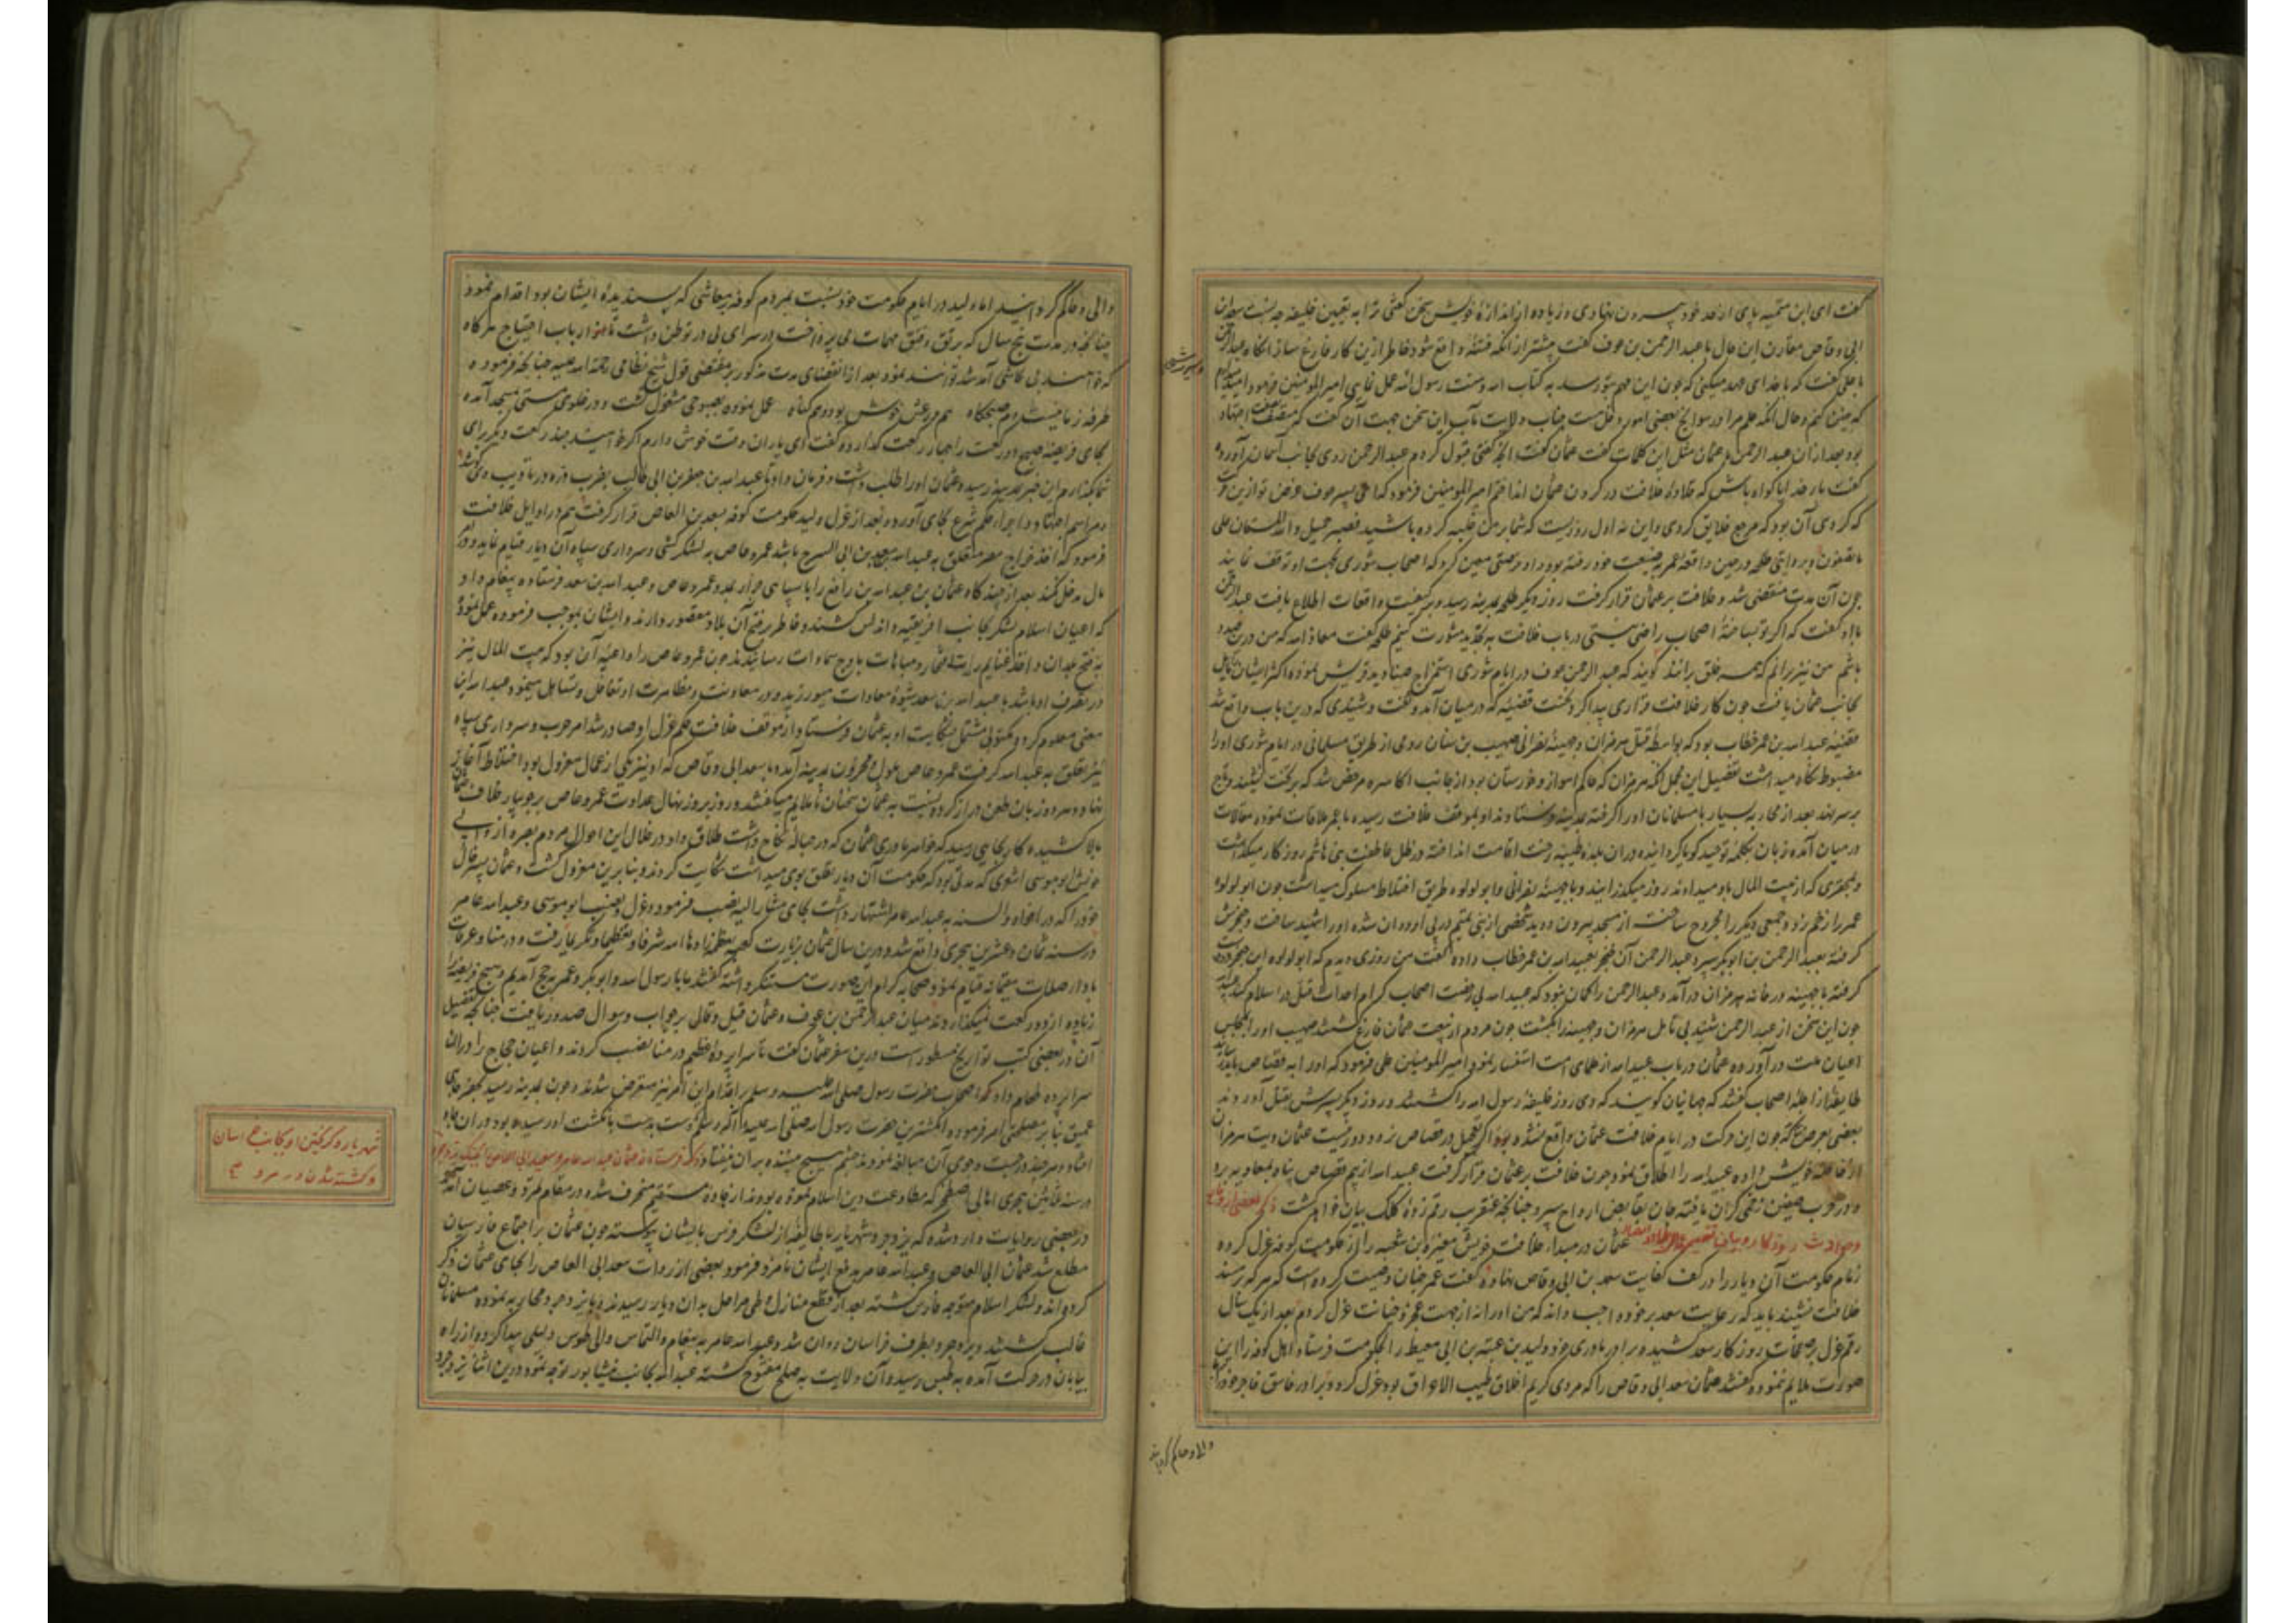 گفت ای ابن سمیه پای از حد خود بیرون نهادی و زیاده از اندازهٔ خویش سخن گفتی ترا به تعیین خلیفه چه نسبت سعد بن
ابی وقاص مقارن این حال با عبد الرحمن بن عوف گفت پیشتر از آنکه فتنهٔ واقع شود خاطر ازین کار فارغ ساز آنگاه عبد الرحمن
با علی گفت که با خدای عهد میکنی که چون این مهم بتو رسد به کتاب الله و سنت رسول الله عمل نمایی امیر المومنین فرمود امیدوارم
که چنین کنم و حال آنکه علم مرا در سوانح بعضی امور دخل نیست جناب ولایت مآب این سخن جهت آن گفت که اجتهاد
بود بعد از آن عبد الرحمن با عثمان مثل این کلمات گفت عثمان گفت آنچه گفتی قبول کردم عبد الرحمن روی بجانب آسمان آورده
گفت بار خدایا گواه باش که قلادهٔ خلافت در گردن عثمان انداختم امیر المومنین فرمود که ای پسر عوف غرض تو ازین
که کردی آن بود که مرجع خلایق گردی و این نه اول روزیست که شما بر من غلبه کرده باشید فصبر جمیل والله المستعان علی
ما تصفون و بروایتی طلحه در حین واقعهٔ عمر به ضیعت خود رفته بود و او وصیتی معین کرد که اصحاب شوری بجهت او توقف نمایند
چون آن مدت منقضی شد و خلافت بر عثمان قرار گرفت روز دیگر طلحه بمدینه رسید و بر کیفیت واقعات اطلاع یافت عبد الرحمن
با او گفت که اگر تو بساختهٔ اصحاب راضی نیستی در باب خلافت به تجدید مشورت کنیم طلحه گفت معاذ الله که من درین صدد
باشم من نیز برانم که همه خلق برانند گویند که عبد الرحمن عوف در ایام شوری استمزاج صنادید قریش نموده اکثر ایشان مایل
بجانب عثمان یافت چون کار خلافت قراری پیدا کرد نخست قضیه که در میان آمد و گفت و شنیدی که درین باب واقع شد
قضیه عبد الله بن عمر خطاب بود که بواسطهٔ قتل هرمزان و جهینهٔ نصرانی صهیب بن سنان رومی از طریق مسلمانی در ایام شوری او را
مضبوط نگاه میداشت تفصیل این مجمل آنکه هرمزان که حاکم اهواز و خوزستان بود از جانب اکاسره مرخص شد که بر تخت نشیند و تاج
بر سر نهد بعد از محاربه بسیار با مسلمانان او را گرفته بمدینه فرستادند او بموقف خلافت رسیده با عمر ملاقات نموده مقالات
در میان آمده زبان بکلمه توحید گویا گردانیده در آن بلده طیبه رخت اقامت انداخته در ظل عاطفت بنی هاشم روزگار میگذاشت
و بمقرری که از بیت المال باو میدادند روز میگذرانید و با جهینهٔ نصرانی و ابو لولوه طریق اختلاط مسلوک میداشت چون ابو لولوه
عمر را زخم زد و جمعی دیگر را مجروح ساخت از مسجد بیرون دوید شخصی از بنی تمیم در پی او روان شده او را شهید ساخت و خنجرش
گرفته بعبد الرحمن بن ابو بکر سپرد عبد الرحمن آن خنجر بعبید الله بن عمر خطاب داده گفت من روزی دیدم که ابو لولوه این خنجر در دست
گرفته با جهینه در خانه هرمزان درآمد و عبد الرحمن را گمان نبود که عبید الله بی رخصت اصحاب کرام احداث قتل در اسلام کند عبید الله
چون این سخن از عبد الرحمن شنید بی تامل هرمزان و جهینه را بکشت چون مردم از بیعت عثمان فارغ گشتند صهیب او را بمجلس
اعیان ملت درآورده عثمان در باب عبید الله از علمای امت استفسار نمود امیر المومنین علی فرمود که او را به قصاص باید رسانید
طایفه از اجلهٔ اصحاب گفتند که جهانیان گویند که دی روز خلیفهٔ رسول الله را کشتند و روز دیگر پسرش بقتل آوردند
بعضی بعرض رسانیدند که چون این حرکت در ایام خلافت عثمان واقع نشده بود اگر تعجیل در قصاص نرود دور نیست عثمان دیت هرمزان
از خاصهٔ خویش داده عبید الله را اطلاق نمود چون خلافت بر عثمان قرار گرفت عبید الله از بیم قصاص پناه بمعاویه برد
و در حرب صفین زخمی گران یافته جان بقابض ارواح سپرد چنانچه عنقریب رقم زدهٔ کلک بیان خواهد گشت ذکر بعضی از وقایع
و حوادث روزگار و بیان عثمان در مبداء خلافت خویش مغیرة بن شعبه را از حکومت کوفه عزل کرده
زمام حکومت آن دیار را در کف کفایت سعد بن ابی وقاص نهاد و گفت عمر چنان وصیت کرده است که هر که بر مسند
خلافت نشیند باید که رعایت سعد بر خود واجب داند که من او را نه از جهت عجز و خیانت عزل کردم بعد از یک سال
رقم عزل بر صفحات روزگار سعد کشیده برادر مادری خود ولید بن عتبه بن ابی معیط را بحکومت فرستاد اهل کوفه را این
صورت ملایم ننموده گفتند عثمان سعد ابی وقاص را که مردی کریم اخلاق طیب الاعراق بود عزل کرد و برادر فاسق فاجر خود را
والی و حاکم گردانید
والی و حاکم گردانید اما ولید در ایام حکومت خود نسبت بمردم کوفه بمعاشی که پسندیدهٔ ایشان بود اقدام نمود
چنانکه در مدت پنج سال که برتق و فتق مهمات می پرداخت در سرای بی در توطن داشت تا هر از ارباب احتیاج هر گاه
که خواستند بی تحاشی آمد شد توانستند نمود بعد از انقضای مدت مذکور بر مقتضی قول شیخ نظامی رحمة الله علیه چنانکه فرموده
طرفه زمانیست دم صبحگاه هم در عشق خوش بود و هم گناه عمل نموده بصبوحی مشغول گشت و در غلوی مستی بمسجد آمده
بجای فریضهٔ صبح دو رکعت را چهار رکعت گذارده گفت ای یاران وقت خوش دارم اگر خواهید چند رکعت دیگر برای
شما بگذارم این خبر بمدینه رسیده عثمان او را طلب داشت و فرمان داد تا عبد الله بن جعفر بن ابی طالب بضرب دره در تادیب وی کوشد
و مراسم اجتهاد و اجراء حکم شرع بجای آورد و بعد از عزل ولید حکومت کوفه بسعید بن العاص قرار گرفت هم در اوایل خلافت
فرمود که اخذ خراج مصر متعلق به عبد الله سعد بن ابی السرح باشد عمرو عاص به لشکرکشی و سرداری سپاه آن دیار قیام نماید و در
مال مدخل نکند بعد از چند گاه عثمان بن عبد الله بن رافع را با سپاهی جرار بمدد عمرو عاص و عبد الله بن سعد فرستاده پیغام داد
که اعیان اسلام لشکر بجانب افریقیه و اندلس کشند و خاطر بر فتح آن بلاد مقصور دارند و ایشان بموجب فرموده عمل نموده
به فتح بلدان و اخذ غنایم رایت افتخار و مباهات باوج سماوات رسانیدند چون عمرو عاص را داعیه آن بود که بیت المال نیز
در تصرف او باشد با عبد الله بن سعد شیوهٔ معادات میورزید و در معاونت و مظاهرت او تغافل و تساهل مینمود عبد الله این
معنی معلوم کرد و مکتوبی مشتمل بر شکایت او به عثمان فرستاد و از موقف خلافت حکم عزل او صادر شد امر حرب و سرداری سپاه
نیز تعلق به عبد الله گرفت عمرو عاص ملول و محزون بمدینه آمده با سعد ابی وقاص که او نیز یکی از عمال معزول بود اختلاط آغاز
نهاد و هر دو زبان طعن دراز کرده نسبت به عثمان سخنان ناملایم میگفتند و روز بروز نهال عداوت عمرو عاص بر جویبار خلاف عثمان
بالا کشیده کار بجایی رسید که خواهر مادری عثمان که در حبالهٔ نکاح داشت طلاق داد و در خلال این احوال مردم بصره از والی
خویش ابو موسی اشعری که مدتی بود که حکومت آن دیار تعلق بوی میداشت شکایت کردند و بنابرین معزول گشت و عثمان پسر خال
خود را که در افواه و السنه به عبد الله عامر اشتهار داشت بجای مشار الیه نصب فرمود و عزل و نصب ابو موسی و عبد الله عامر
در سنه ثمان و عشرین هجری واقع شد و درین سال عثمان بزیارت کعبه معظمه زادها الله شرفا و تعظیما و تکریما رفت و در منا و عرفات
بادا صلات مقیمانه قیام نمود صحابه کرام این صورت مستنکر داشته گفتند ما با رسول الله و ابو بکر و عمر به حج آمدیم و هیچ فریضه را
زیاده از دو رکعت نمیگذاردند میان عبد الرحمن بن عوف و عثمان قیل و قال بر جواب و سوال صدور یافت چنانچه تفصیل
آن در بعضی کتب تواریخ مسطور است و درین سفر عثمان گفت تا سراپردهٔ عظیم در منا نصب کردند و اعیان حجاج را در آن
سراپرده طعام داد و اصحاب حضرت رسول صلی الله علیه و سلم بر اقدام این امر نیز متعرض شدند و چون بمدینه رسید بحفر چاهی
عمیق بنا بر مصلحتی امر فرموده انگشترین حضرت رسول الله صلی الله علیه و آله و سلم که دست بدست بانگشت او رسیده بود در آن چاه
افتاد و هر چند در جست و جوی آن مبالغه نمودند چشم هیچ بیننده بر آن نیفتاد ذکر فرستادن عثمان عبد الله عامر و سعید ابی العاص را بجنگ یزدجرد
در سنه ثلاثین هجری اهالی اصطخر که مطاوعت دین اسلام نموده بودند از جادهٔ مستقیم منحرف شده در مقام تمرد و عصیان آمدند
در بعضی روایات وارد شده که یزدجرد شهریار با طایفه از لشکر فرس بایشان پیوسته چون عثمان بر اجتماع فارسیان
مطلع شد عثمان ابی العاص و عبد الله عامر بدفع ایشان نامزد فرمود و بعضی از روات سعد ابی العاص را بجای عثمان ذکر
کرده اند و لشکر اسلام متوجه فارس گشته بعد از قطع منازل و طی مراحل بدان دیار رسیدند و با یزدجرد محاربه نموده مسلمانان
غالب گشتند و یزدجرد بطرف خراسان روان شد و عبد الله عامر به پیغام و التماس والی طوس دلیلی پیدا کرد و از راه
بیابان در حرکت آمده به طبس رسید و آن ولایت به صلح مفتوح گشته عبد الله بجانب نیشابور توجه نمود و درین اثنا یزدجرد
شهریار و گریختن او بجانب خراسان
و کشته شدن در مرو